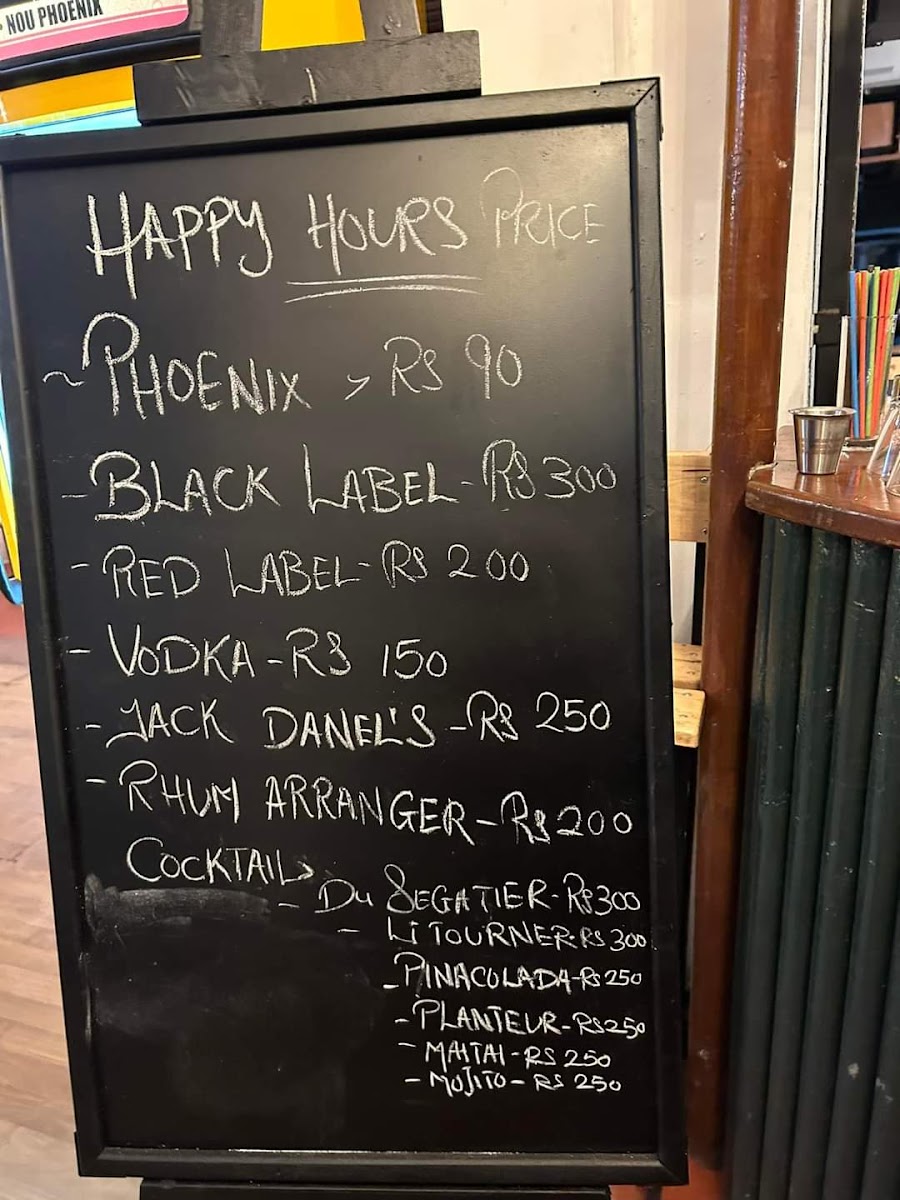 NOU PHOENIX
HAPPY HOURS PRICE
~ PHOENIX > RS 90
- BLACK LABEL - RS 300
- RED LABEL - RS 200
- VODKA - RS 150
- JACK DANEL'S - RS 250
- RHUM ARRANGER - RS 200
COCKTAIL >
- DU SEGATIER - RS 300
- LI TOURNER - RS 300
- PINACOLADA - RS 250
- PLANTEUR - RS 250
- MAITAI - RS 250
- MOJITO - RS 250